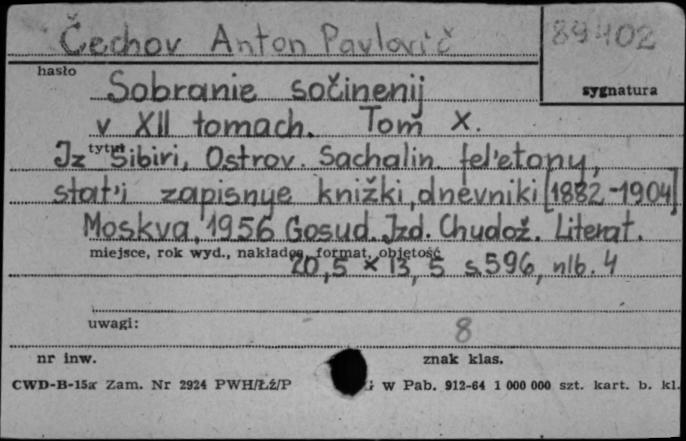 Čechov Anton Pavlovič
89402
hasło
sygnatura
Sobranie sočinenij
v XII tomach. Tom X.
tytuł
Iz Sibiri, Ostrov. Sachalin. fel'etony,
stat'i zapisnye knižki, dnevniki [1882-1904]
Moskva, 1956 Gosud. Izd. Chudož. Literat.
miejsce, rok wyd., nakładca, format, objętość
20,5 × 13,5 s. 596, nlb. 4
uwagi:
8
nr inw.
znak klas.
CWD-B-15a Zam. Nr 2924 PWH/Łź/P w Pab. 912-64 1 000 000 szt. kart. b. kl.